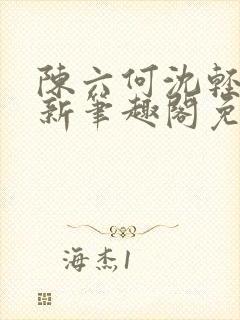 陳六何沈輕
新筆趣閣免
海杰1